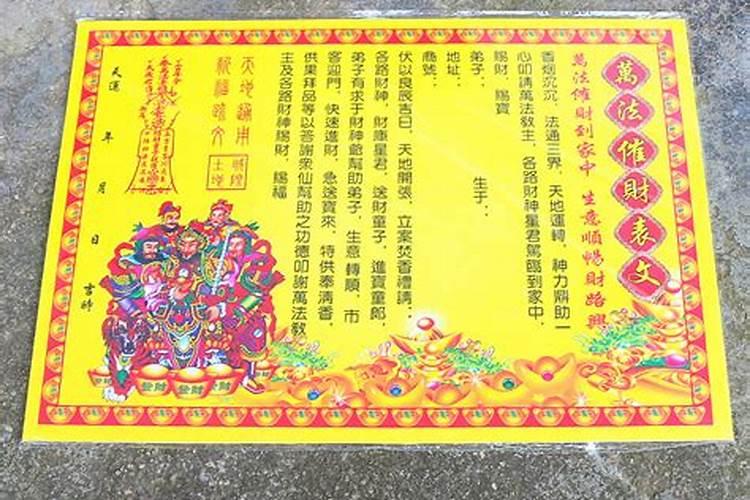 萬法催財表文
萬法催財到家中 生意順暢財路興
香烟沉沉，法通三界，天地運轉，神力鼎助一
心叩請萬法教主，各路財神星君駕臨到家中，
賜財，賜寶
弟子： 生于：
地址：
商號：
伏以良辰吉日，天地開張，立案焚香禮請：
各路財神，財庫星君，送財童子，進寶童郎，
弟子有求于財神爺幫助弟子，生意轉順，市
客迎門，快速進財，急送寶來，特供奉清香，
供果拜品等以答謝衆仙幫助之功德叩謝萬法教
主及各路財神賜財，賜福
天地通用
祈福疏文
天運 年 月 日 吉時
發財 發財 發財